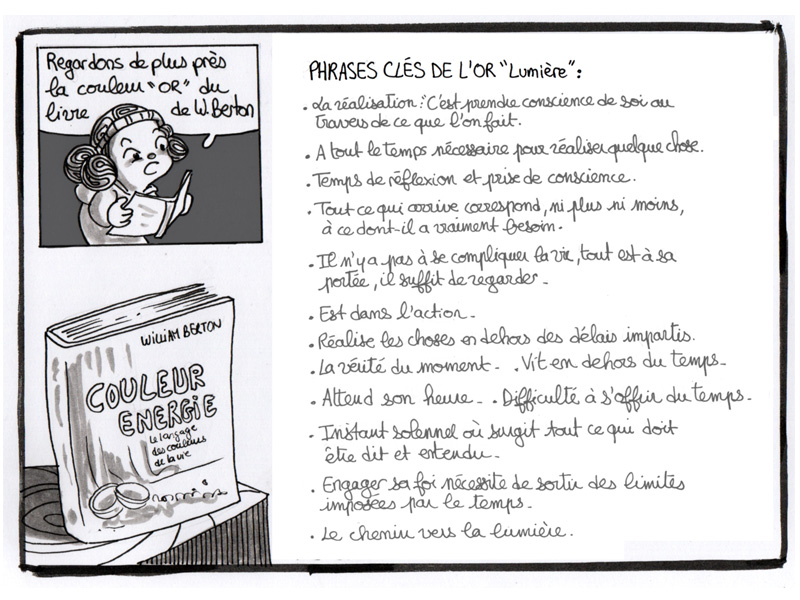 Regardons de plus près
la couleur "OR" du
livre de W. Berton
WILLIAM BERTON
COULEUR
ENERGIE
Le langage
des couleurs
de la vie
PHRASES CLÉS DE L'OR "Lumière":
. La réalisation: C'est prendre conscience de soi au
travers de ce que l'on fait.
. A tout le temps nécessaire pour réaliser quelque chose.
. Temps de réflexion et prise de conscience.
. Tout ce qui arrive correspond, ni plus ni moins,
à ce dont-il a vraiment besoin.
. Il n'y a pas à se compliquer la vie, tout est à sa
portée, il suffit de regarder.
. Est dans l'action.
. Réalise les choses en dehors des délais impartis.
. La vérité du moment. . Vit en dehors du temps.
. Attend son heure. . Difficulté à s'offrir du temps.
. Instant solennel où surgit tout ce qui doit
être dit et entendu.
. Engager sa foi nécessite de sortir des limites
imposées par le temps.
. Le chemin vers la lumière.